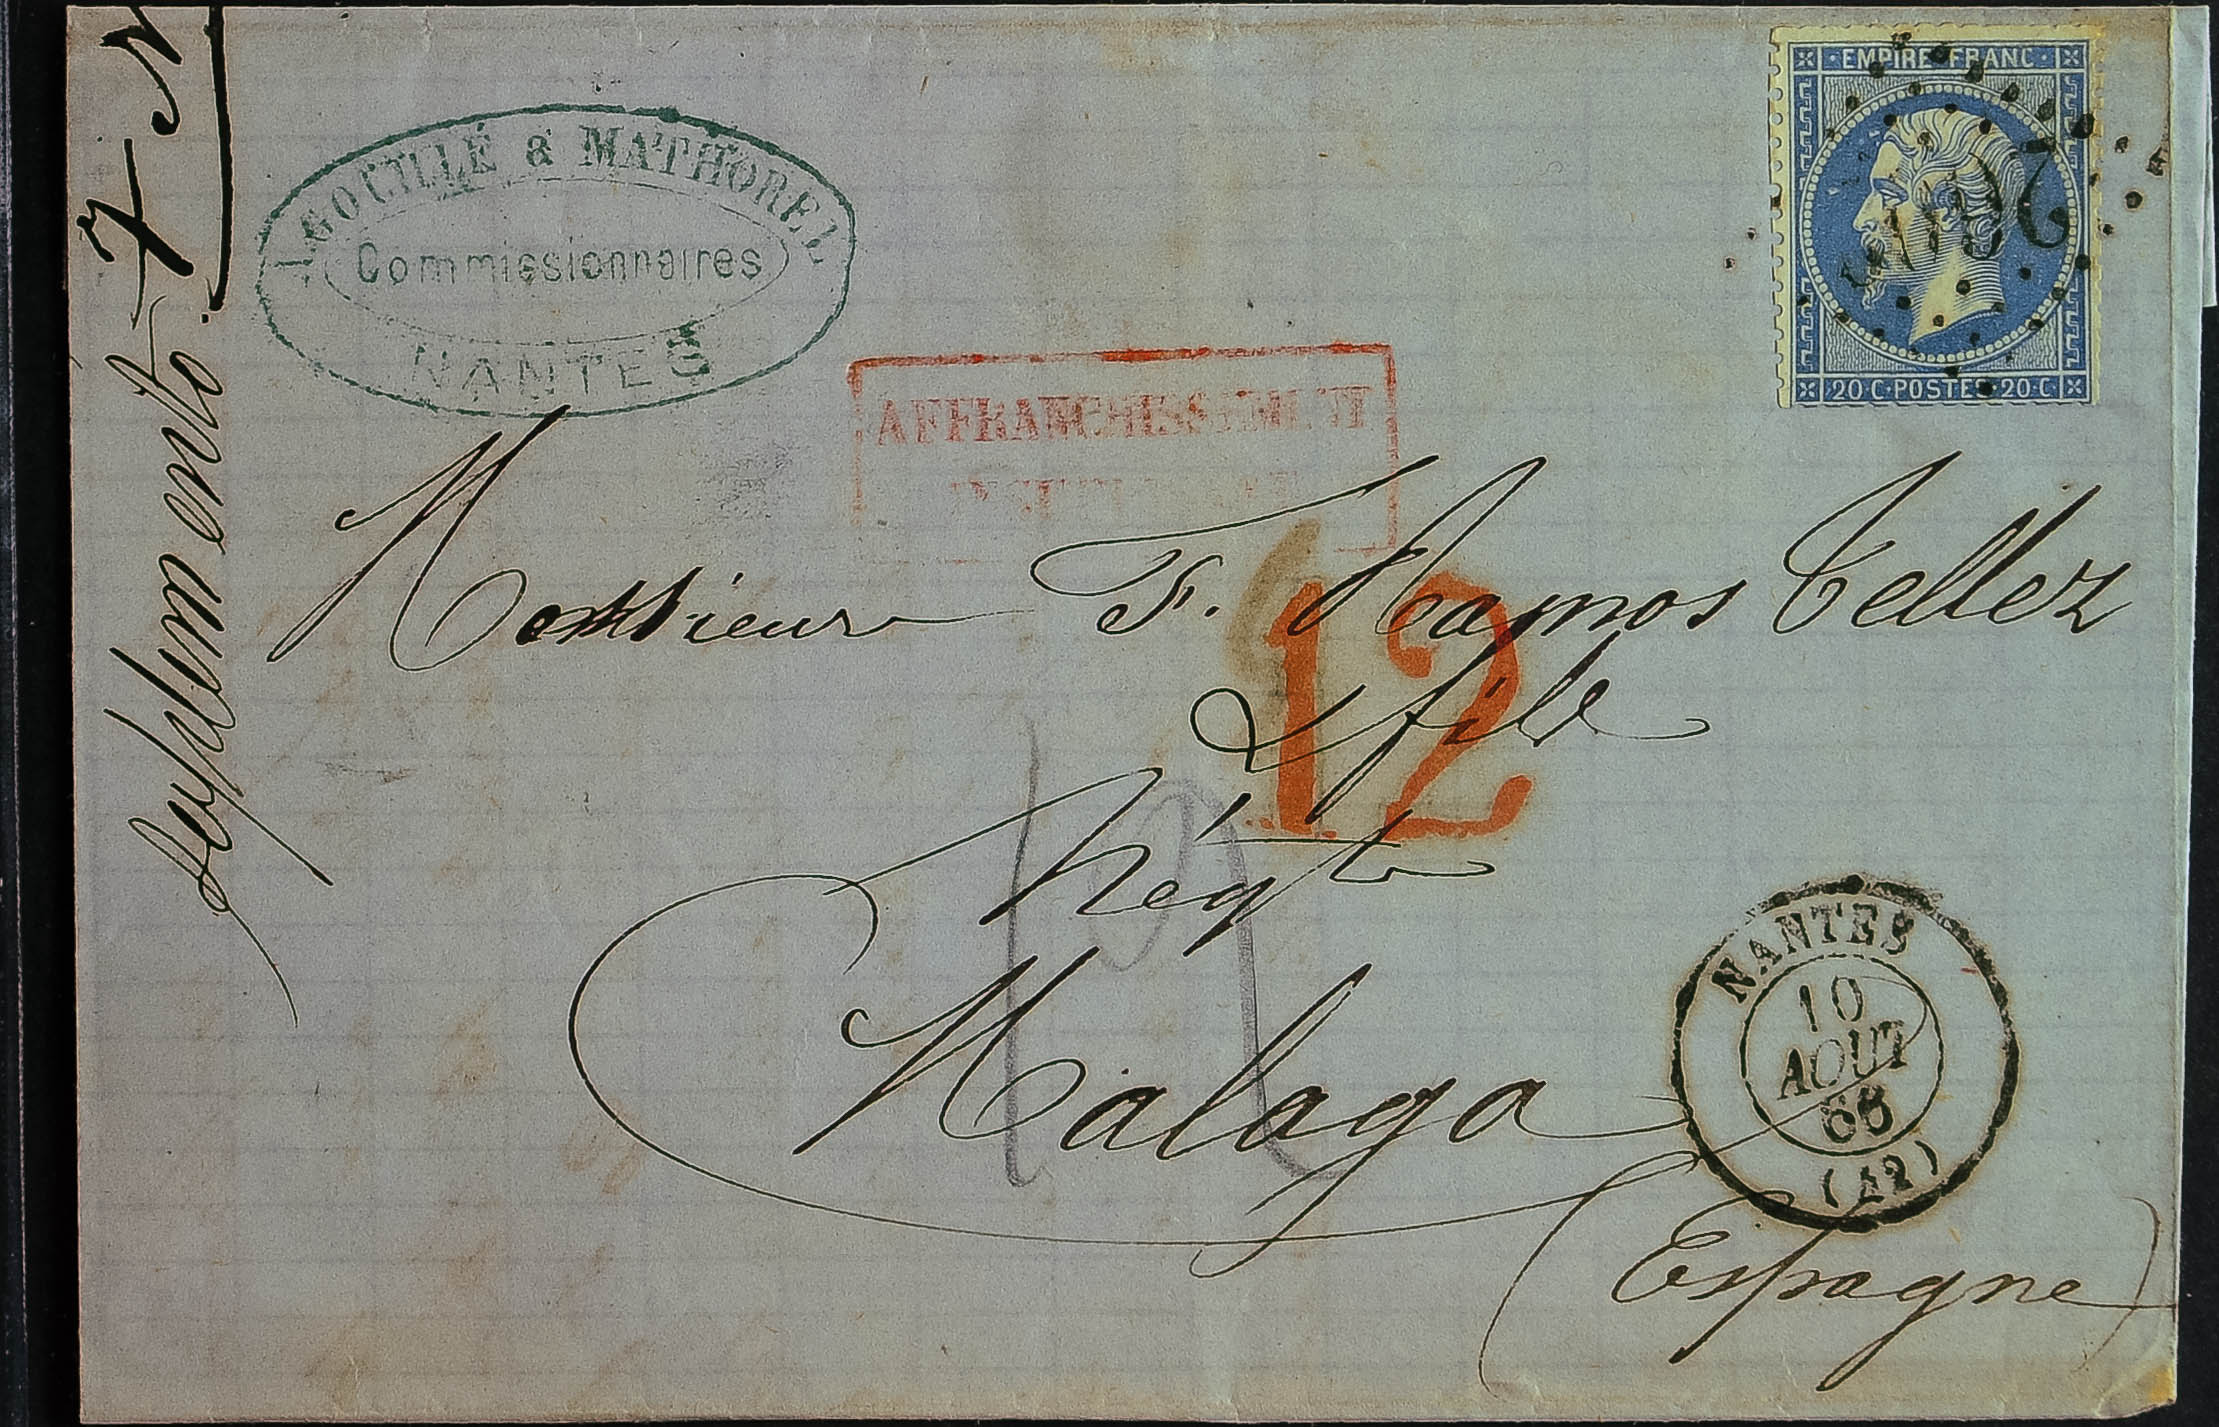 A. GOUILLÉ & MATHOREL
Commissionnaires
NANTES
EMPIRE FRANC
20 C POSTES 20 C
AFFRANCHISSEMENT
Monsieur F. Ramos Tellez
& fils
Négts
Malaga
(Espagne)
12
NANTES
10
AOUT
66
(42)